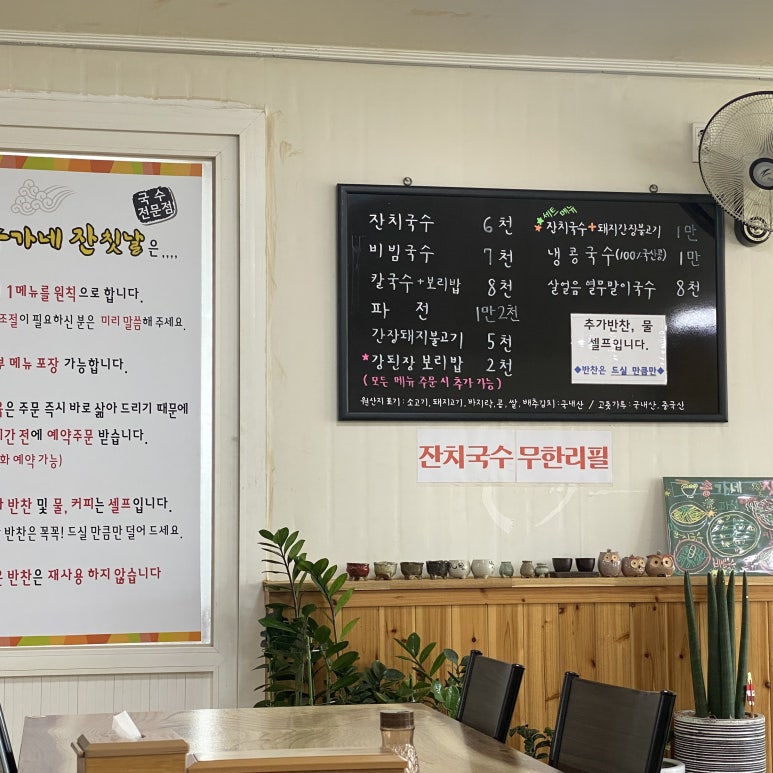 국수
전문점
가네 잔칫날은,,,,
1메뉴를 원칙으로 합니다.
조절이 필요하신 분은 미리 말씀해 주세요.
메뉴 포장 가능합니다.
은 주문 즉시 바로 삶아 드리기 때문에
시간 전에 예약주문 받습니다.
예약 가능)
반찬 및 물, 커피는 셀프입니다.
반찬은 꼭꼭! 드실 만큼만 덜어 드세요.
반찬은 재사용 하지 않습니다
잔치국수 6천
비빔국수 7천
칼국수+보리밥 8천
파전 1만2천
간장돼지불고기 5천
★강된장 보리밥 2천
(모든 메뉴 주문시 추가 가능)
★세트메뉴
★잔치국수+돼지간장불고기 1만
냉콩국수(100%국산콩) 1만
살얼음 열무말이국수 8천
추가반찬, 물
셀프입니다.
◆반찬은 드실 만큼만◆
원산지 표기 : 소고기, 돼지고기, 바지락, 콩, 쌀, 배추김치 : 국내산 / 고춧가루 : 국내산, 중국산
잔치국수 무한리필
송가네